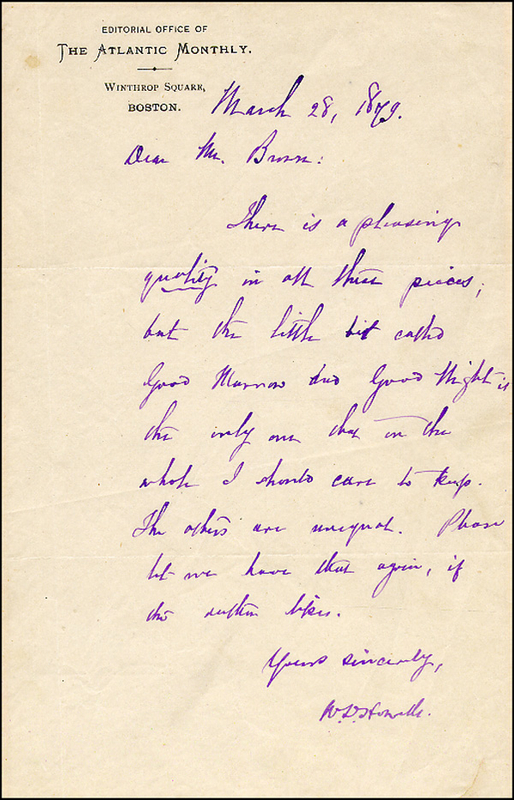 EDITORIAL OFFICE OF
THE ATLANTIC MONTHLY.
WINTHROP SQUARE,
BOSTON.
March 28, 1879.
Dear Mr. Brown:
There is a pleasing
quality in all these pieces;
but the little bit called
Good Morrow and Good Night is
the only one that on the
whole I should care to keep.
The others are unequal. Please
let me have that again, if
the author likes.
Yours sincerely,
W.D. Howells.